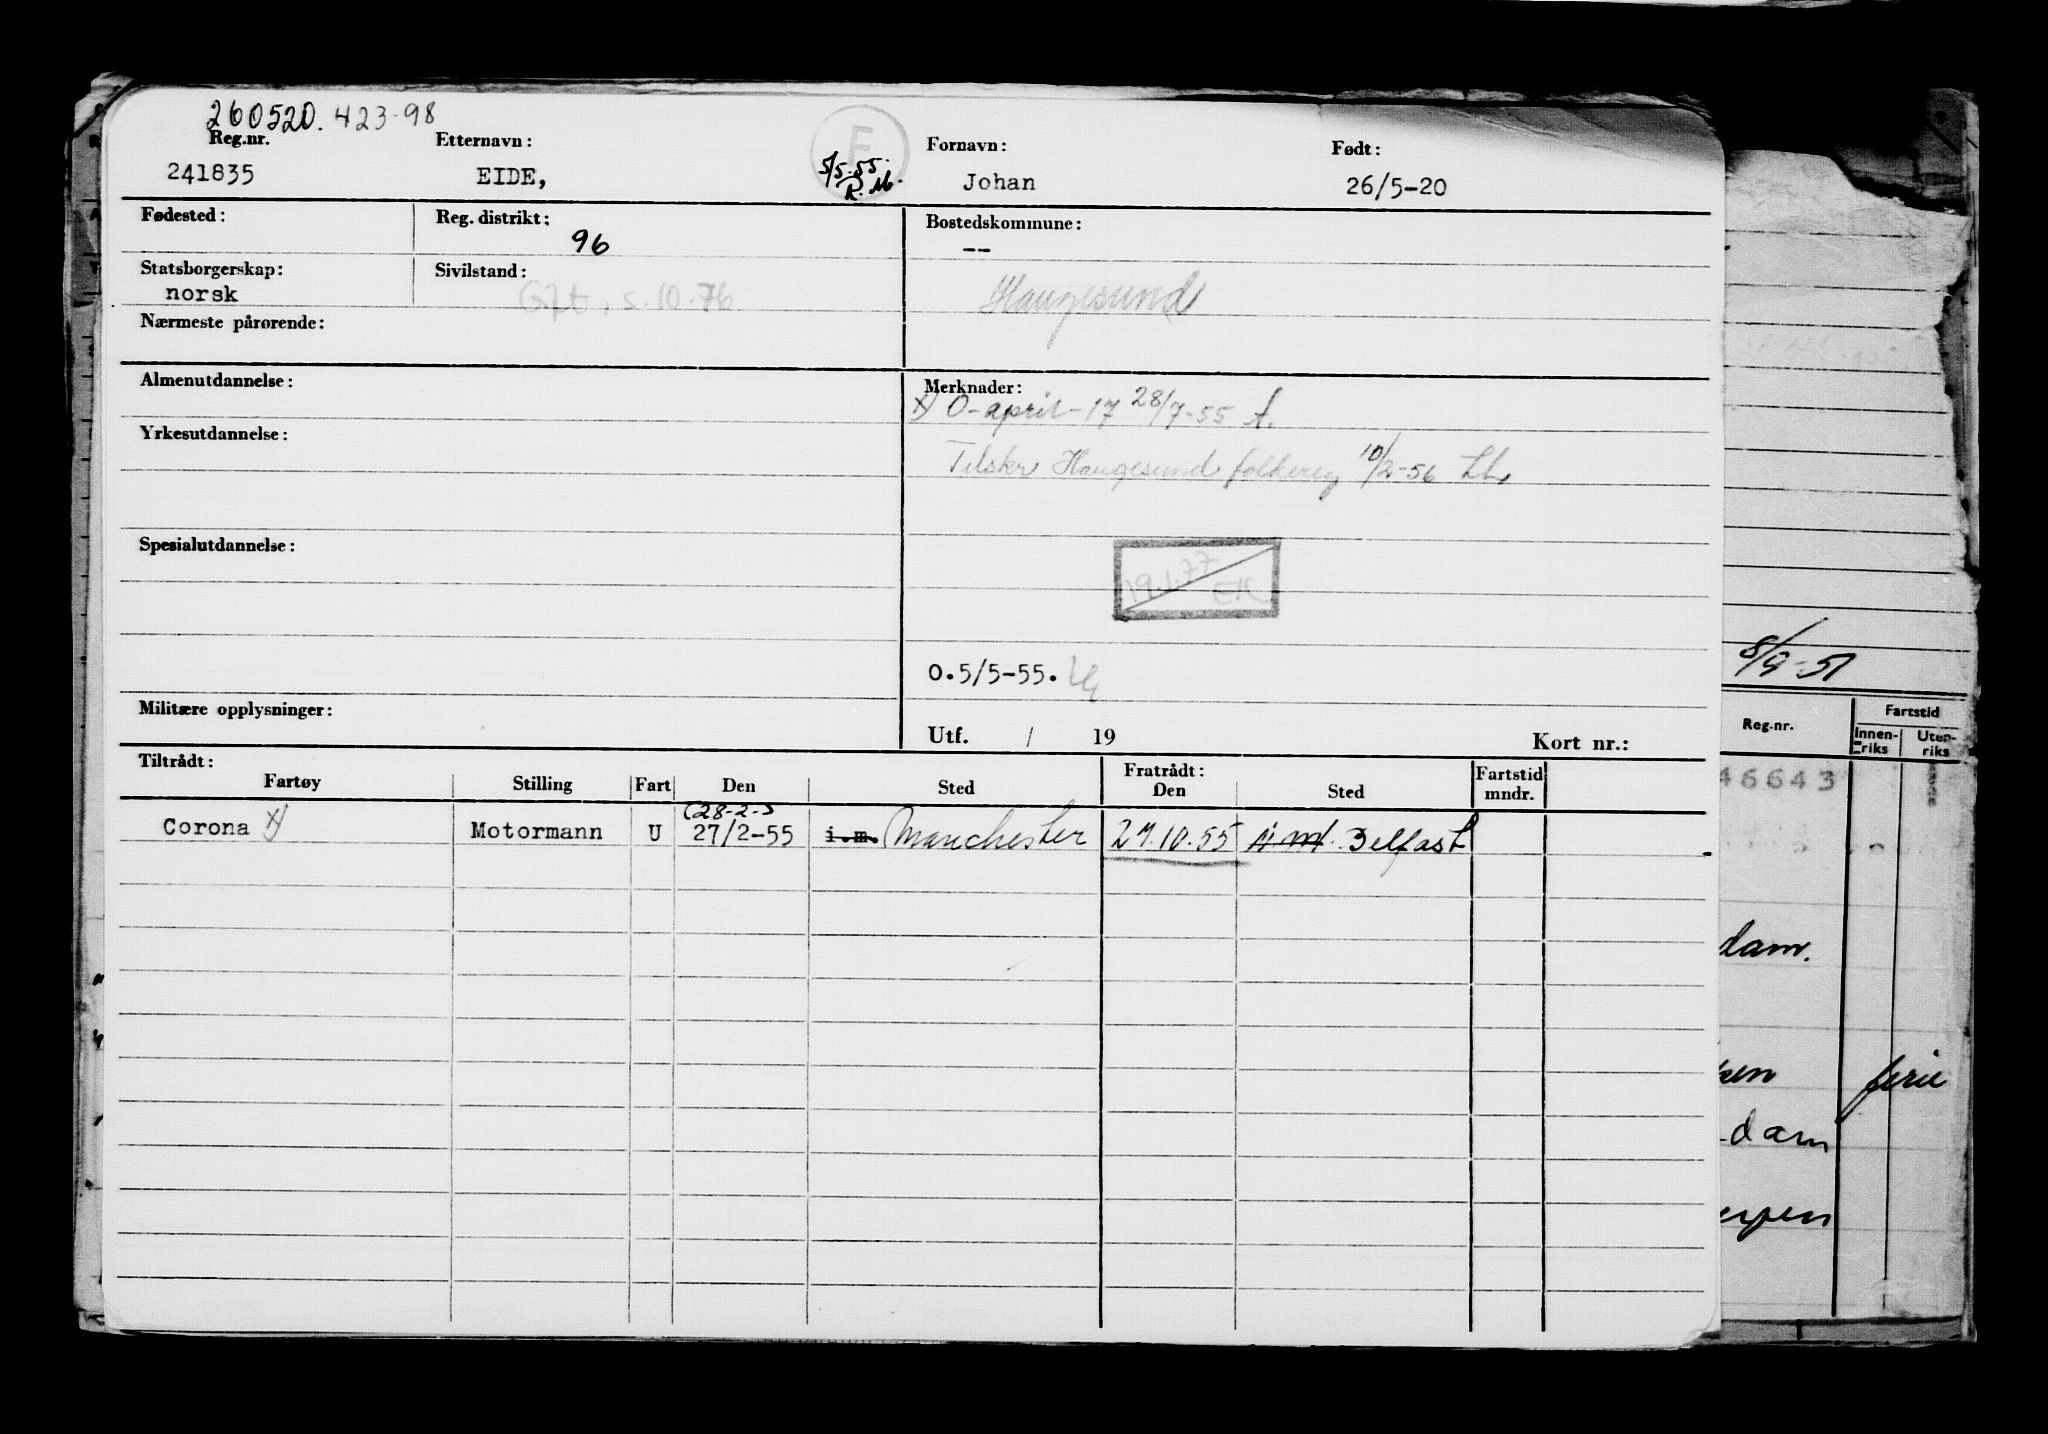 260520. 423-98
Reg.nr. Etternavn: E Fornavn: Født:
241835 EIDE, 5/5.55. R.M. Johan 26/5-20
Fødested: Reg. distrikt: 96 Bostedskommune:
--
Statsborgerskap: Sivilstand:
norsk Gift. s.10.76 Haugesund
Nærmeste pårørende:
Almenutdannelse: Merknader:
x) O-april-17 28/7-55 A.
Yrkesutdannelse:
Tilskr Haugesund folkereg 10/2-56
Spesialutdannelse:
19.1.77 EK
o.5/5-55.
Militære opplysninger: Utf. / 19 Kort nr.:
Tiltrådt: Fratrådt:
Fartøy Stilling Fart Den Sted Den Sted Fartstid mndr.
(28-2-)
Corona x) Motormann U 27/2-55 i.m. Manchester 27.10.55 Belfast
8/9-51
Reg.nr. Fartstid
Innen-riks Uten-riks
46643
dam.
ken ferie
-dam
erpen